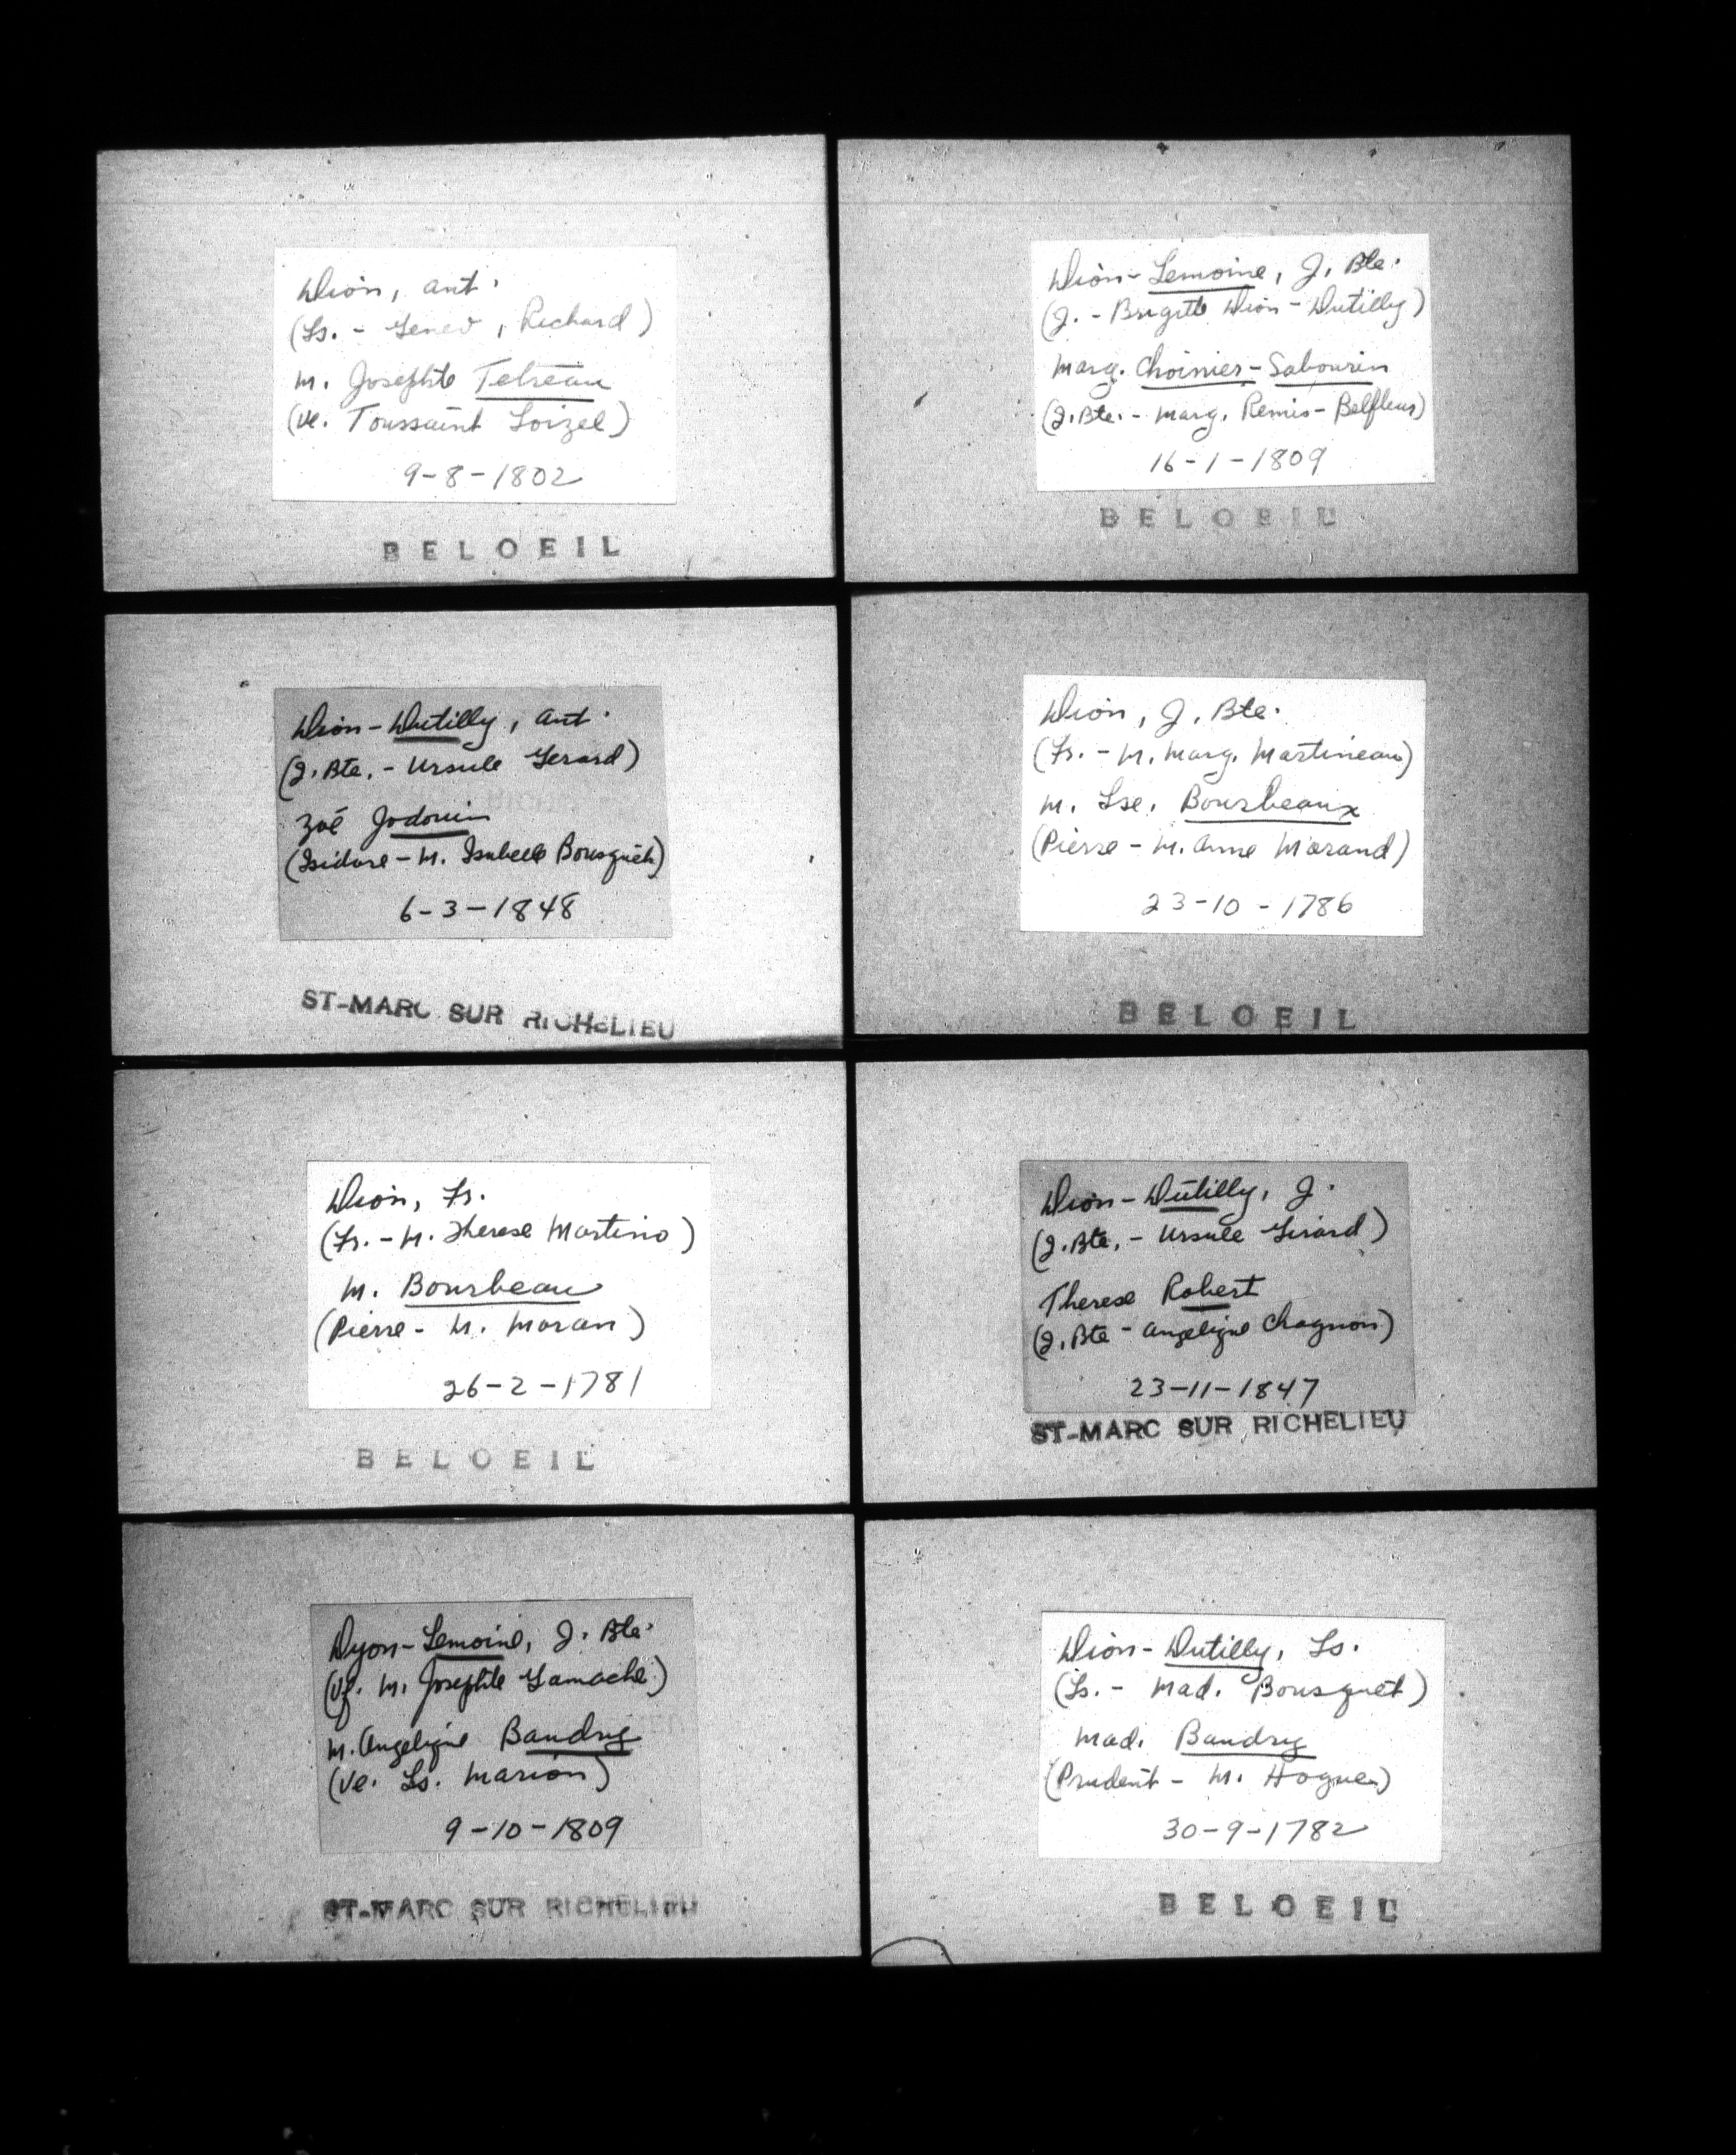 Dion, Ant.
(Ls. - Genev, Richard)
M. Josephte Tetreau
(Ve. Toussaint Loizel)
9-8-1802
BELOEIL
Dion-Lemoine, J. Bte.
(J. - Brigitte Dion-Dutilly)
Marg. Choinier-Sabourin
(J. Bte. - Marg. Remis-Belfleur)
16-1-1809
BELOEIL
Dion-Dutilly, Ant.
(J. Bte. - Ursule Gerard)
Zoé Jodouin
(Isidore - M. Isabelle Bousquet)
6-3-1848
ST-MARC SUR RICHELIEU
Dion, J. Bte.
(Fr. - M. Marg. Martineau)
M. Lse. Bourbeaux
(Pierre - M. Anne Morand)
23-10-1786
BELOEIL
Dion, Fr.
(Fr. - M. Therese Martino)
M. Bourbeau
(Pierre - M. Moran)
26-2-1781
BELOEIL
Dion-Dutilly, J.
(J. Bte. - Ursule Girard)
Therese Robert
(J. Bte - Angelique Chagnon)
23-11-1847
ST-MARC SUR RICHELIEU
Dyon-Lemoine, J. Bte.
(Vf. M. Josephte Gamache)
M. Angelique Baudry
(Ve. Ls. Marion)
9-10-1809
ST-MARC SUR RICHELIEU
Dion-Dutilly, Ls.
(Ls. - Mad. Bousquet)
Mad. Baudry
(Prudent - M. Hogues)
30-9-1782
BELOEIL